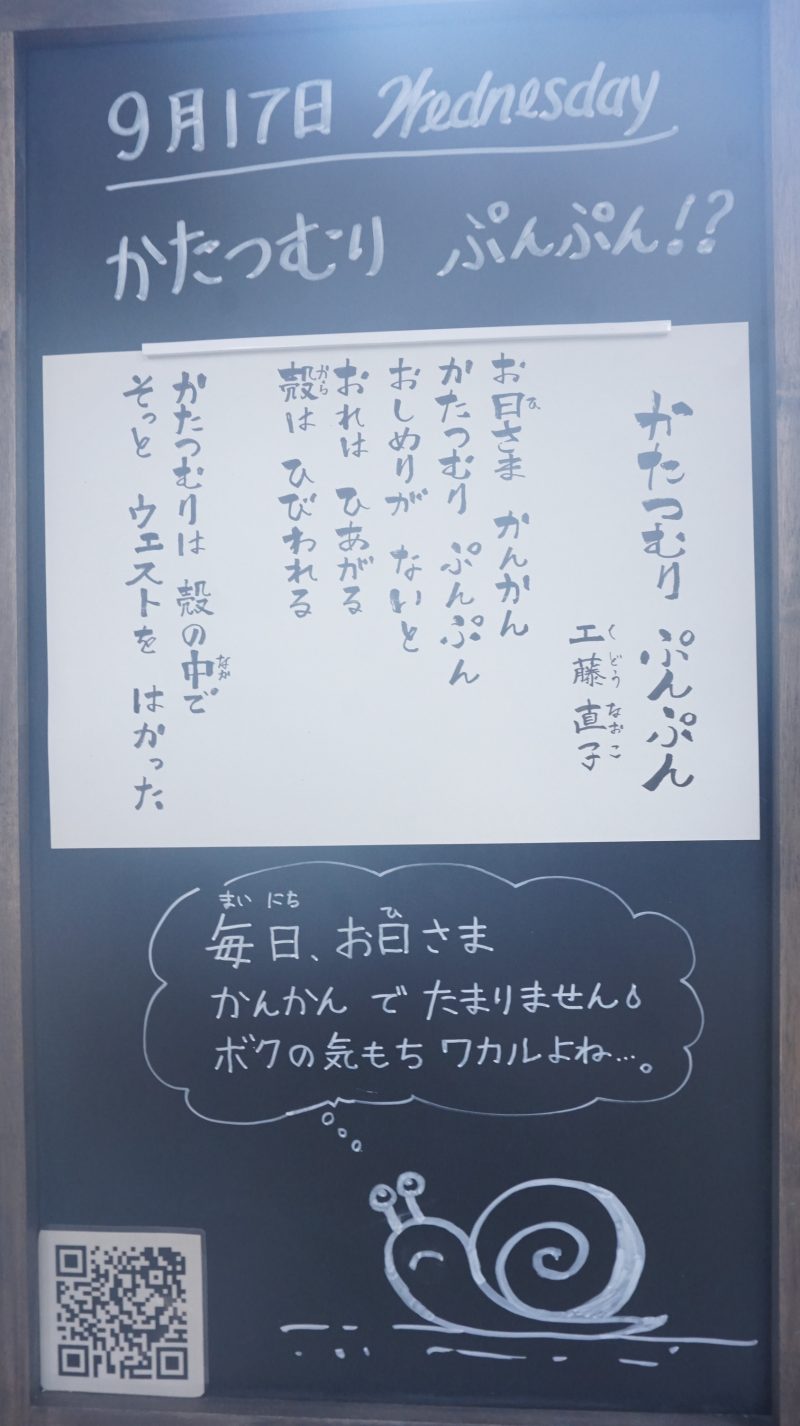 9月17日 Wednesday
かたつむり ぷんぷん!?
かたつむり ぷんぷん
工藤直子
くどうなおこ
お日さま かんかん
ひ
かたつむり ぷんぷん
おしめりが ないと
おれは ひあがる
殻は ひびわれる
から
かたつむりは 殻の中で
なか
そっと ウエストを はかった
まい にち
毎日、お日さま
ひ
かんかん で たまりません
ボクの気もち ワカルよね…。